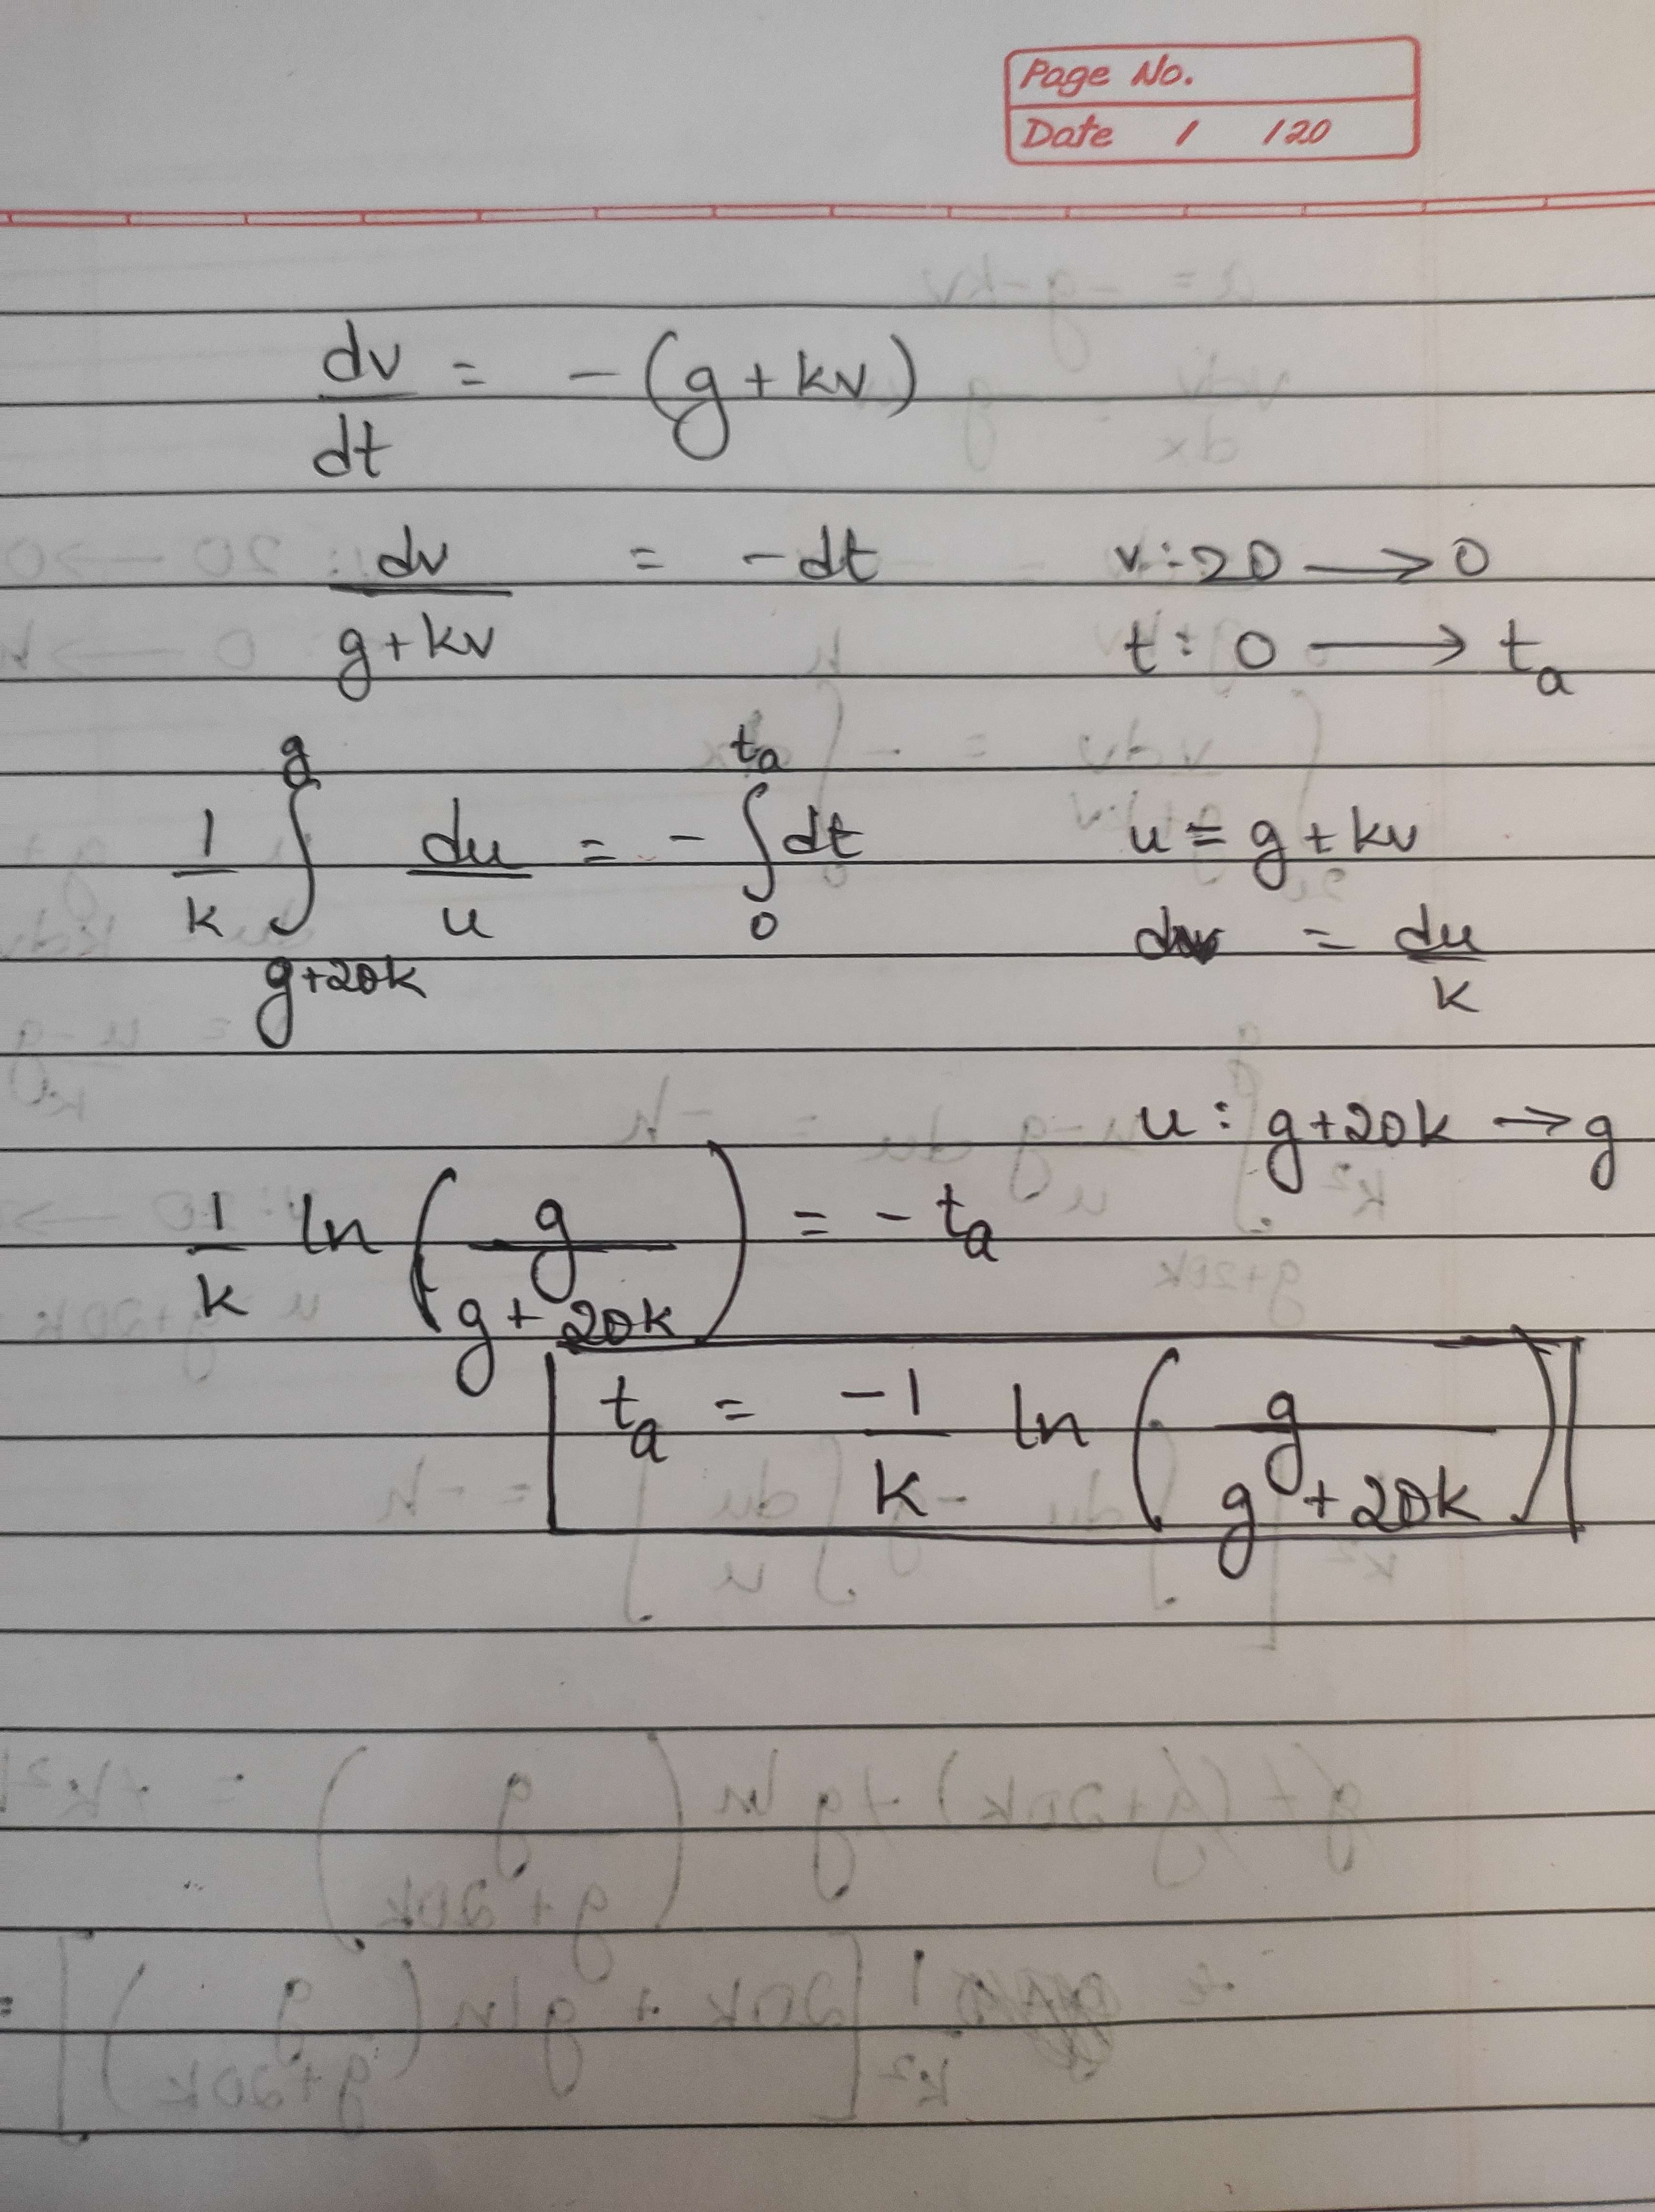 Page No.
Date / /20
dv/dt = -(g+kv)
dv/(g+kv) = -dt v: 20 → 0
t: 0 → t_a
1/k ∫_{g+20k}^{g} du/u = - ∫_{0}^{t_a} dt u = g+kv
dv = du/k
u: g+20k → g
1/k ln (g/(g+20k)) = -t_a
t_a = -1/k ln (g/(g+20k))